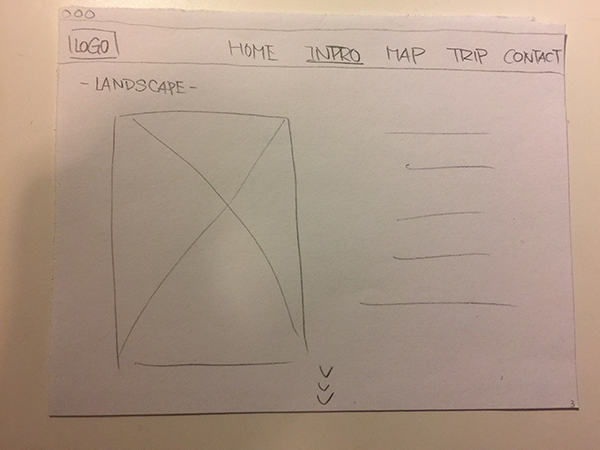 LOGO HOME INPRO MAP TRIP CONTACT
- LANDSCAPE -
3